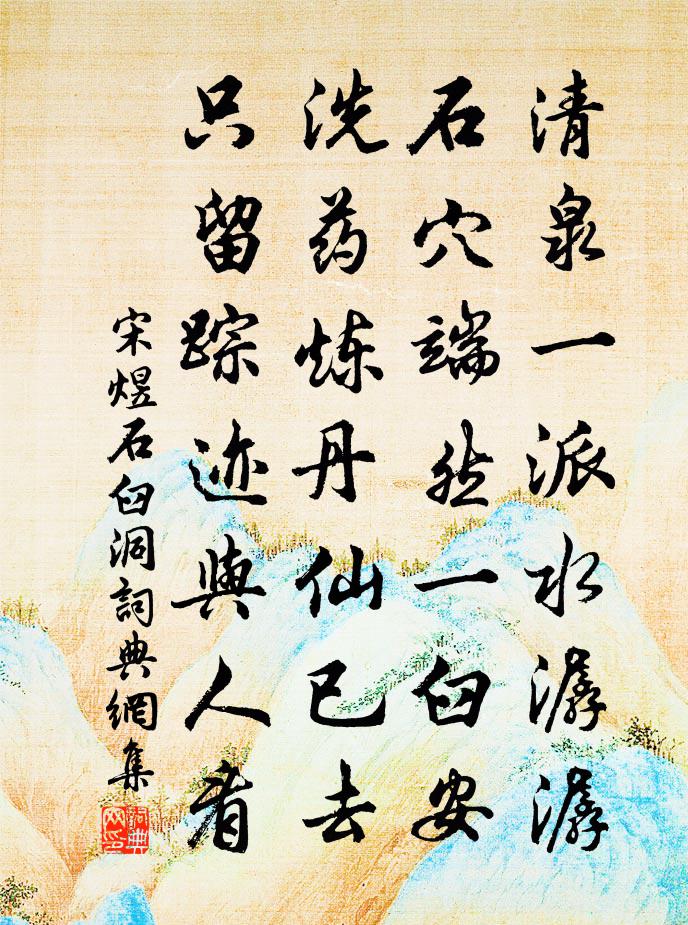 清泉一派水潺潺
石穴端然一臼安
洗药炼丹仙已去
只留踪迹與人看
宋煜石臼洞詞典網集
詞典网印